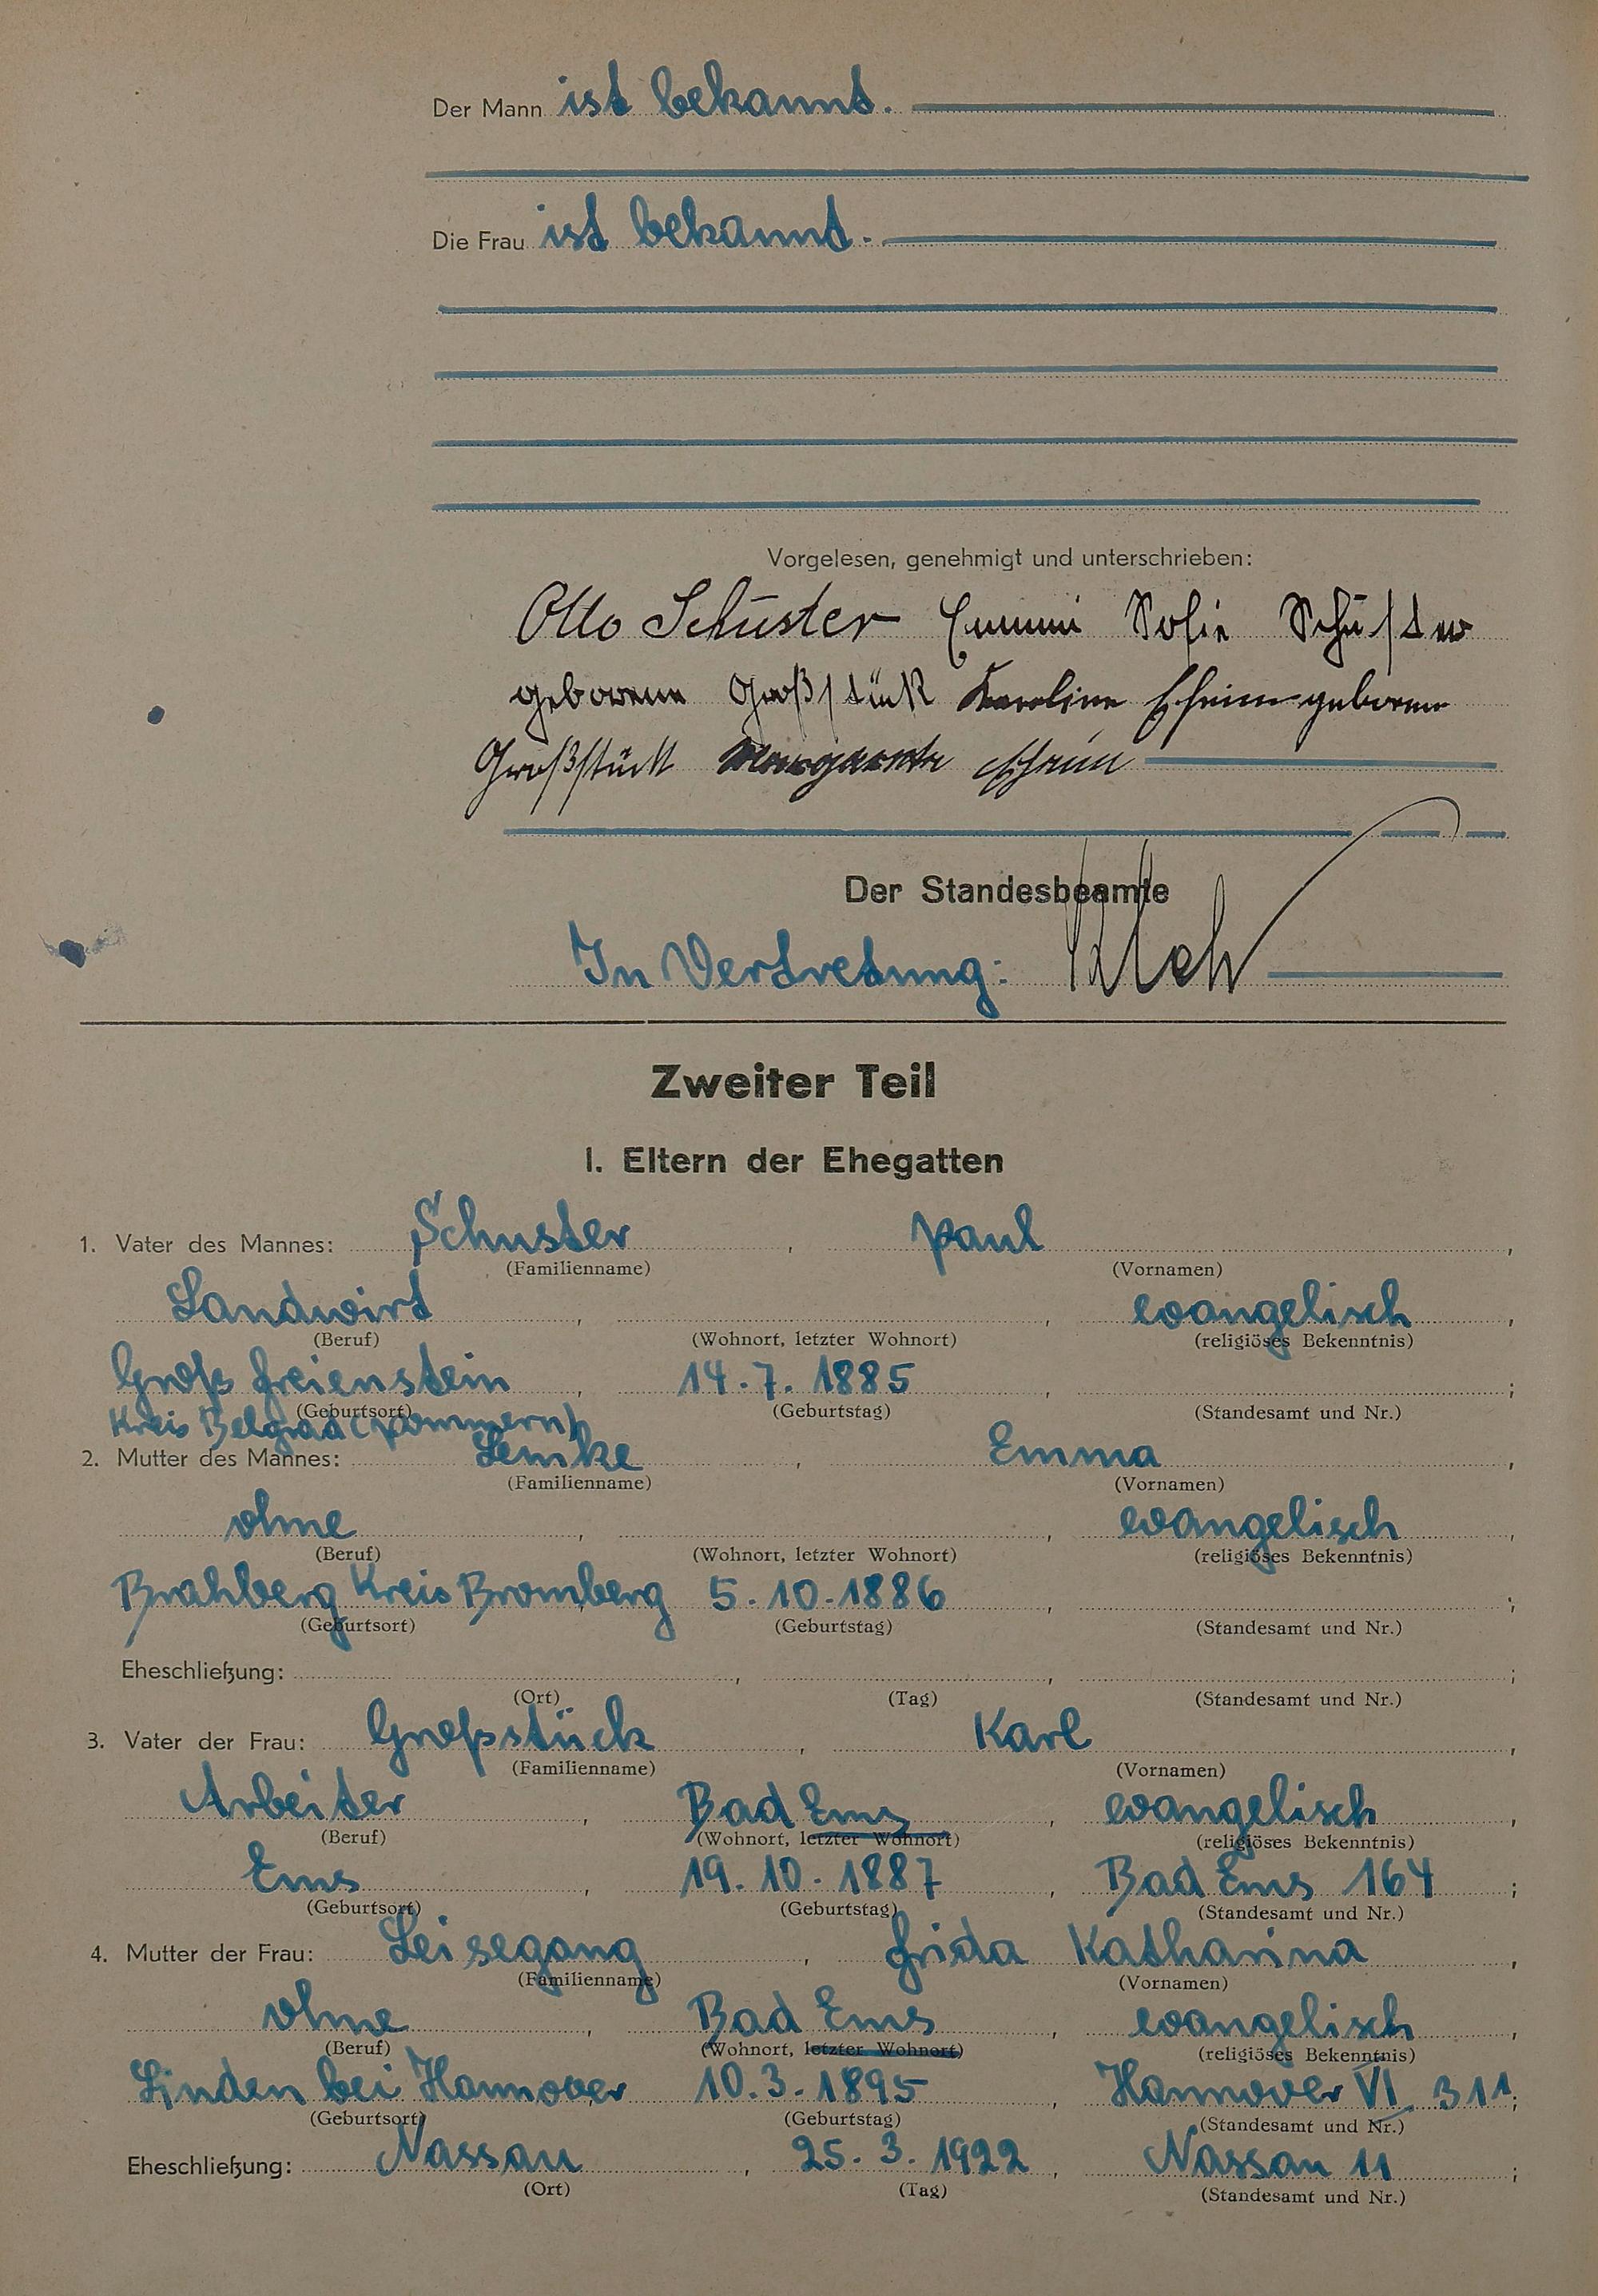 Der Mann ist bekannt.
Die Frau ist bekannt.
Vorgelesen, genehmigt und unterschrieben:
Otto Schuster Emmi Sofie Schuster
geborene Großstück Karoline geborene
Großstück Margareta
Der Standesbeamte
In Vertretung:
Zweiter Teil
I. Eltern der Ehegatten
1. Vater des Mannes: Schuster, Paul,
(Familienname) (Vornamen)
Landwirt, , evangelisch,
(Beruf) (Wohnort, letzter Wohnort) (religiöses Bekenntnis)
Groß Freienstein, 14.7.1885, ;
(Geburtsort) (Geburtstag) (Standesamt und Nr.)
Kreis Belgrad (Pommern)
2. Mutter des Mannes: Lemke, Emma,
(Familienname) (Vornamen)
ohne, , evangelisch,
(Beruf) (Wohnort, letzter Wohnort) (religiöses Bekenntnis)
Brahberg Kreis Bromberg 5.10.1886, ;
(Geburtsort) (Geburtstag) (Standesamt und Nr.)
Eheschließung: , , ;
(Ort) (Tag) (Standesamt und Nr.)
3. Vater der Frau: Großstück, Karl,
(Familienname) (Vornamen)
Arbeiter, Bad Ems, evangelisch,
(Beruf) (Wohnort, letzter Wohnort) (religiöses Bekenntnis)
Ems, 19.10.1887, Bad Ems 164;
(Geburtsort) (Geburtstag) (Standesamt und Nr.)
4. Mutter der Frau: Leisegang, Frida Katharina,
(Familienname) (Vornamen)
ohne, Bad Ems, evangelisch,
(Beruf) (Wohnort, letzter Wohnort) (religiöses Bekenntnis)
Linden bei Hannover 10.3.1895, Hannover VI 311;
(Geburtsort) (Geburtstag) (Standesamt und Nr.)
Eheschließung: Nassau, 25.3.1922, Nassau 11;
(Ort) (Tag) (Standesamt und Nr.)